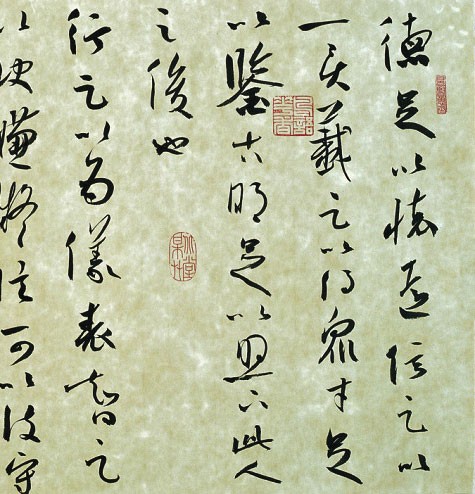 德足以懷遠信足以
一異義足以得眾才足
以鑒古明足以照下此人
之俊也
行足以為儀表智足
以決嫌疑信可以使守